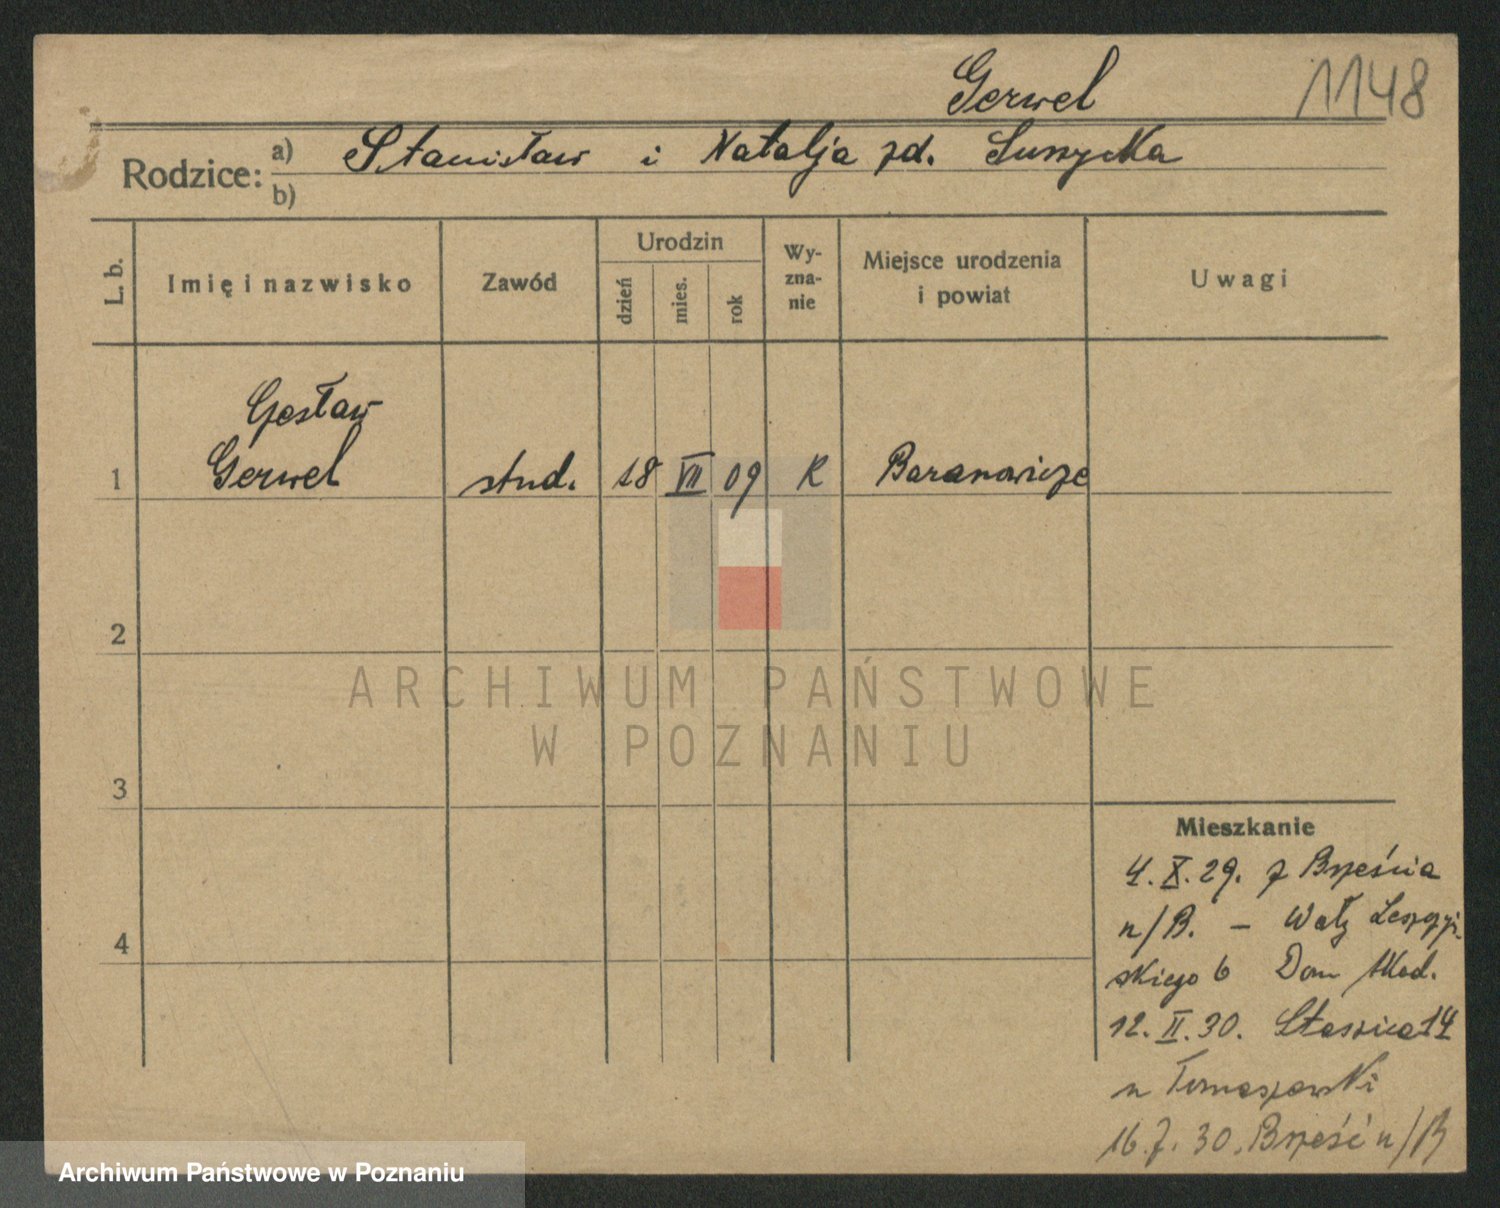 Gerwel 1148
Rodzice: a) Stanisław i Natalja zd.
b)
L. b. Imię i nazwisko Zawód Urodzin dzień mies. rok Wy-zna-nie Miejsce urodzenia i powiat Uwagi
Gesław
1 Gerwel stud. 18 VII 09 R Baranowicze
2
ARCHIWUM PAŃSTWOWE
W POZNANIU
3
Mieszkanie
4. X. 29. z Brześcia
n/B. – Wały Leszczyń-
4
skiego 6 Dom Akad.
12. II. 30. Staszica 14
u Tomaszewski
16. 7. 30. Brześć n/B
Archiwum Państwowe w Poznaniu